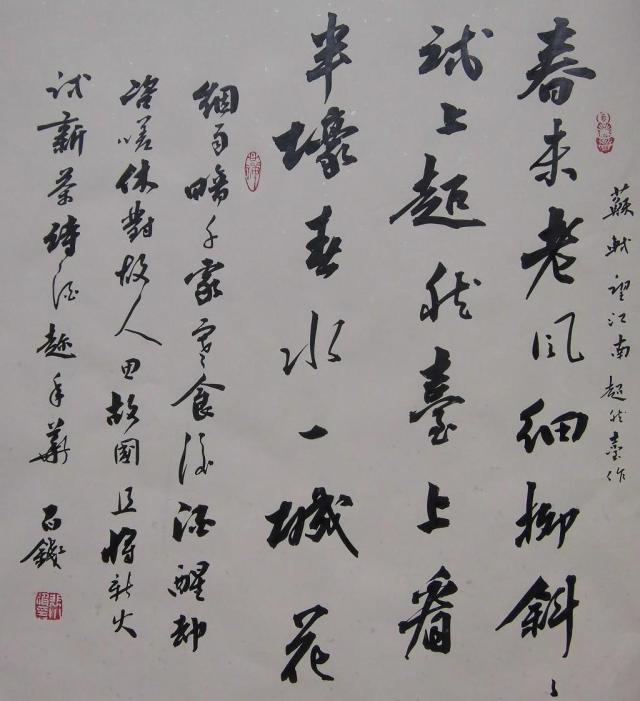 蘇軾望江南超然臺作
春未老風細柳斜〻
試上超然臺上看
半壕春水一城花
細雨暗千家寒食後酒醒却
咨嗟休對故人思故國且將新火
試新茶詩酒趁年華